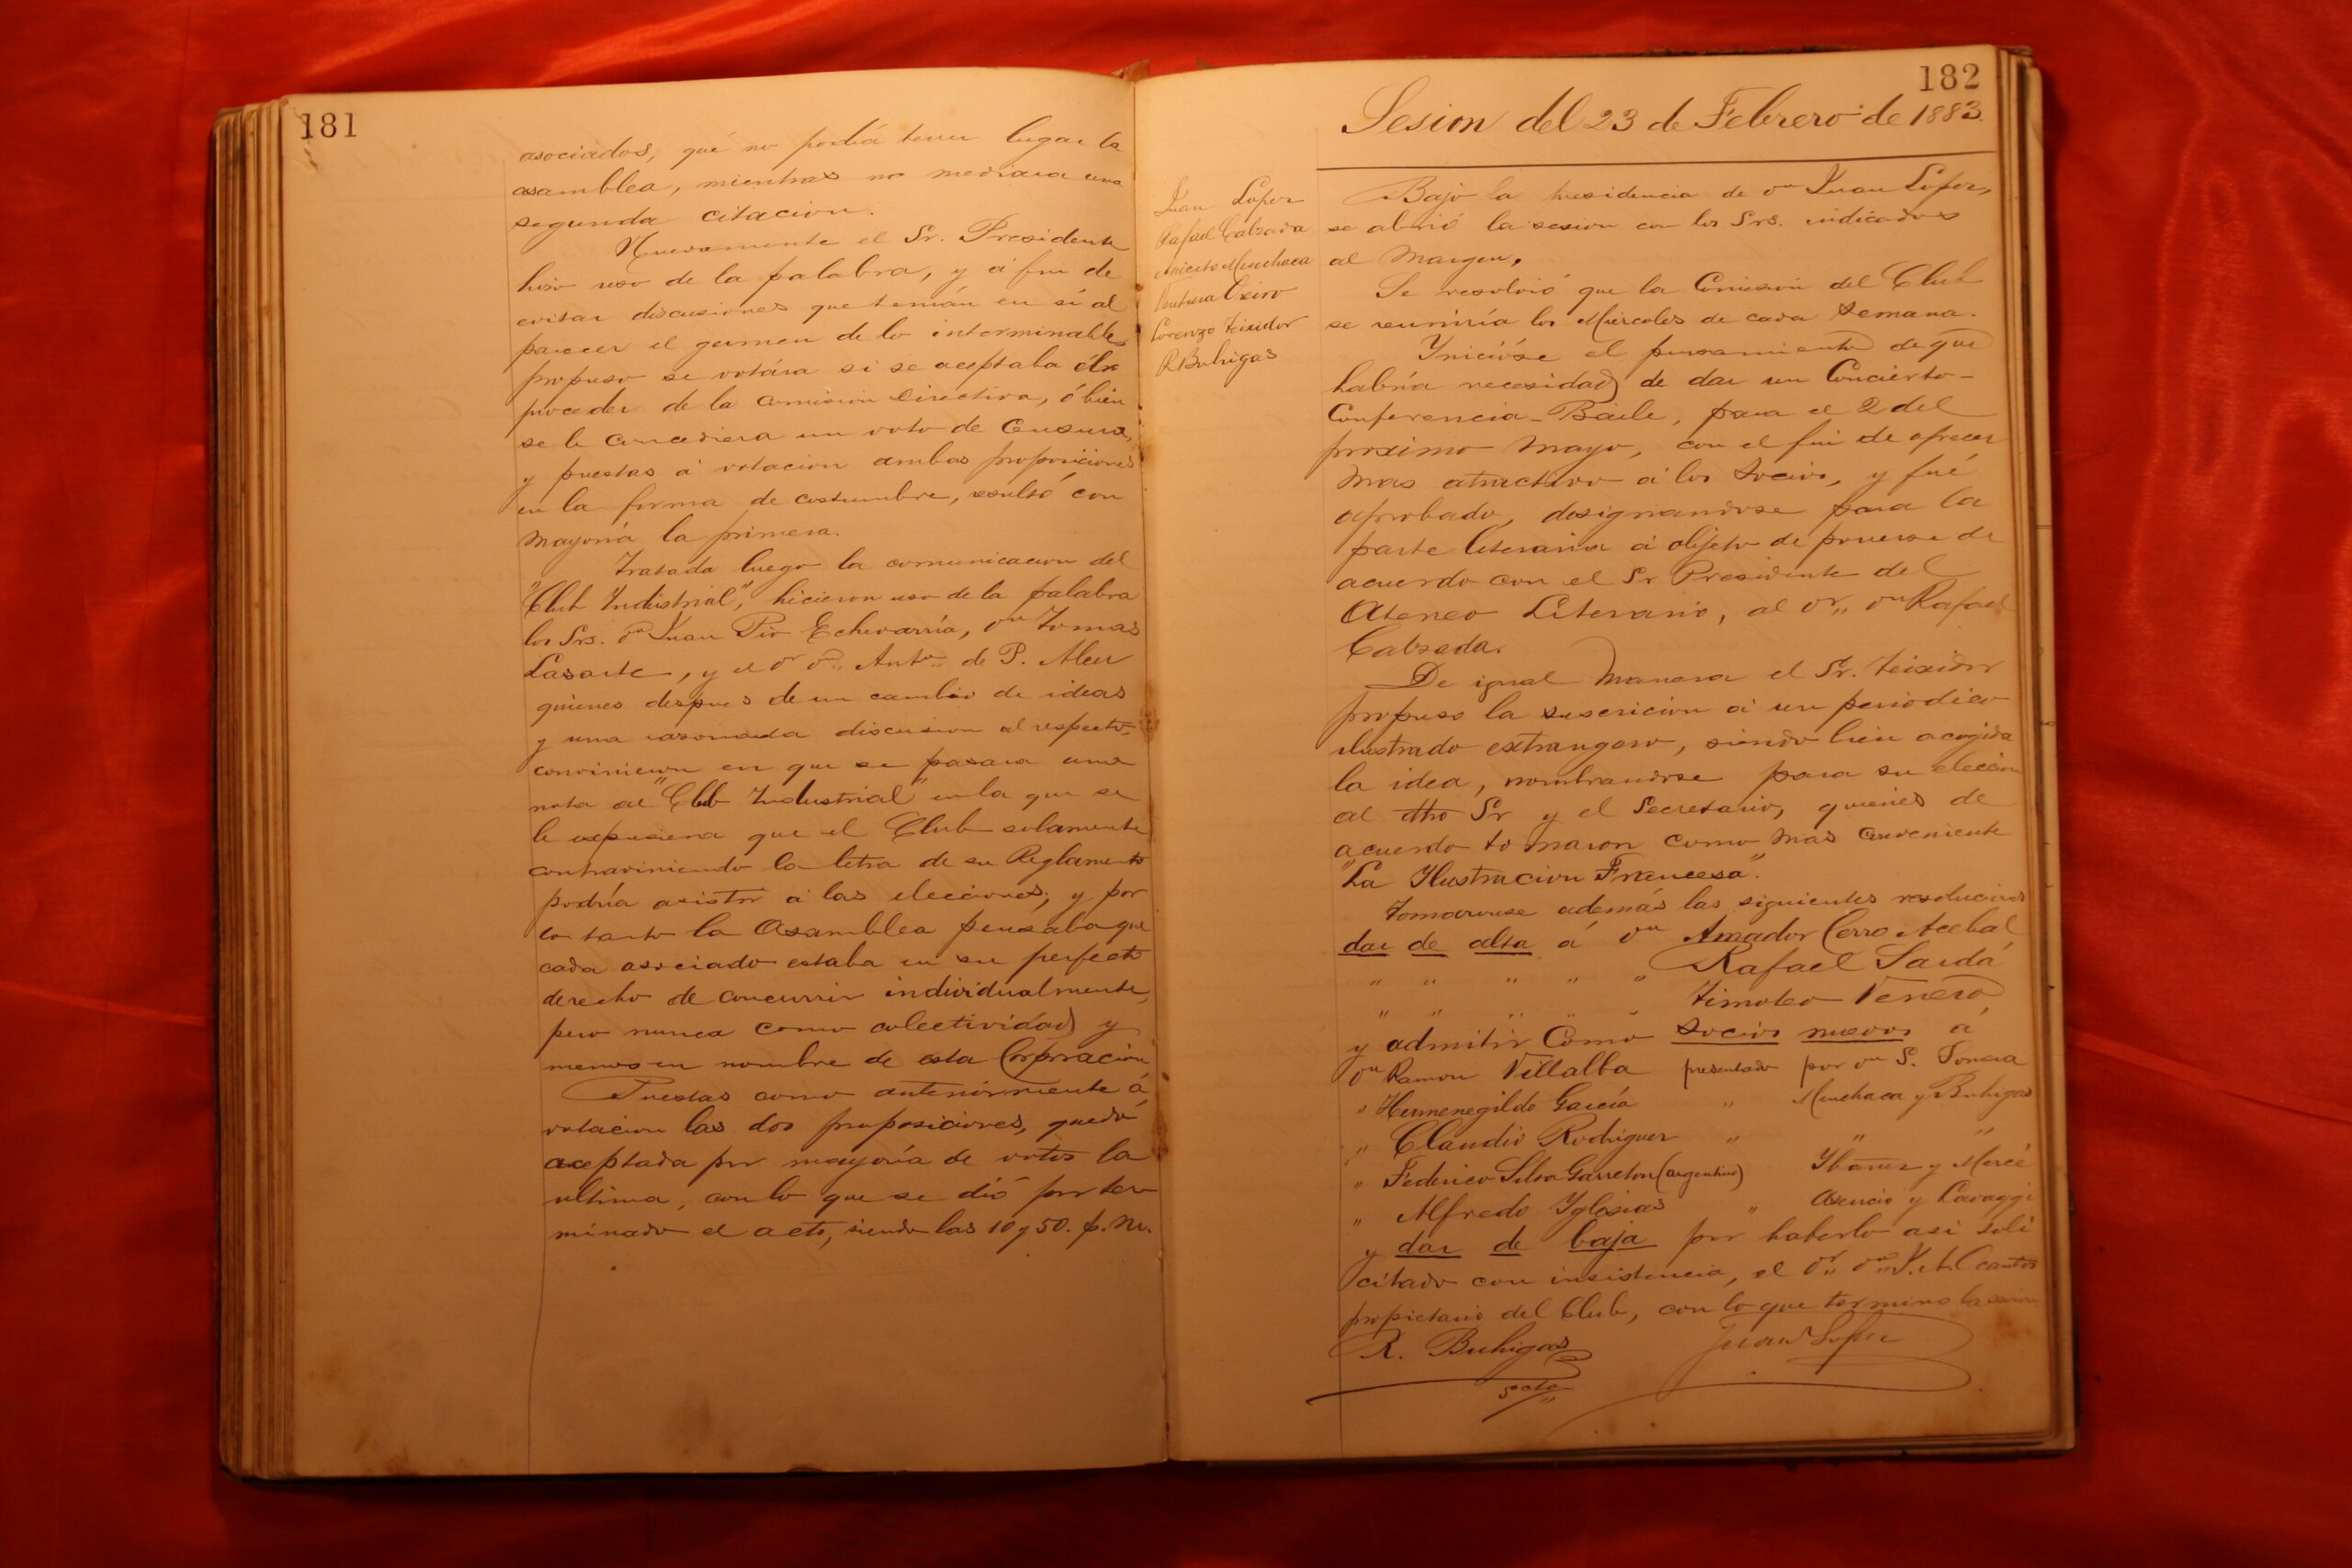 181
asociados, que no podrá tener lugar la
asamblea, mientras no mediara una
segunda citacion.
Nuevamente el Sr. Presidente
hizo uso de la palabra, y á fin de
evitar discusiones que tenian en sí al
parecer el germen de lo interminable
propuso se votára si se aceptaba el
proceder de la comision directiva, ó bien
se le concediera un voto de Censura,
y puestas á votacion ambas proposiciones
en la forma de costumbre, resultó con
mayoría la primera.
Tratada luego la comunicacion del
"Club Industrial", hicieron uso de la palabra
los Srs. Dn Juan Pio Echevarría, Dn Tomas
Lasarte, y el Dr Dn Anto de P. Aleu
quienes despues de un cambio de ideas
y una razonada discusion al respecto,
convinieron en que se pasara una
nota al "Club Industrial" en la que se
le expusiera que el Club solamente
contraviniendo la letra de su Reglamento
podría asistir á las elecciones, y por
lo tanto la Asamblea pensaba que
cada asociado estaba en su perfecto
derecho de concurrir individualmente,
pero nunca como colectividad y
menos en nombre de esta Corporacion
Puestas como anteriormente á
votacion las dos proposiciones, quedó
aceptada por mayoría de votos la
ultima, con lo que se dió por ter
minado el acto, siendo las 10 y 50. p. m.
182
Sesion del 23 de Febrero de 1883.
Juan López
Rafael Calzada
Aniceto Menchaca
Ventura
Lorenzo Teixidor
R Buhigas
Bajo la presidencia de Dn Juan López,
se abrió la sesion con los Srs. indicados
al margen.
Se resolvió que la Comision del Club
se reuniría los Miercoles de cada Semana.
Inicióse el pensamiento de que
habría necesidad de dar un Concierto-
Conferencia-Baile, para el 2 del
proximo Mayo, con el fin de ofrecer
mas atractivo á los Socios, y fué
aprobado, designandose para la
parte literaria á objeto de ponerse de
acuerdo con el Sr Presidente del
Ateneo Literario, al Dr. Dn Rafael
Calzada.
De igual manera el Sr. Teixidor
propuso la suscricion á un periodico
ilustrado extrangero, siendo bien acogida
la idea, nombrandose para su eleccion
al dho Sr y el Secretario, quienes de
acuerdo tomaron como mas conveniente
"La Ilustracion Francesa".
Tomaronse además las siguientes resoluciones
dar de alta á Dn Amador Cerro Acebal
" " " " " Rafael Sardá
" " " " " Timoteo Venero
y admitir como socios nuevos á
Dn Ramon Villalba presentado por Dn S.
" Hermenegildo García " Menchaca y Buhigas
" Claudio Rodriguez " " "
" Federico Silva Garreton (argentino) Ybañez y Mercé
" Alfredo Yglesias " Asencio y Cavaggi
y dar de baja por haberlo asi soli
citado con insistencia, el Dr. Dn
propietario del Club, con lo que termino la sesion
R. Buhigas
Juan López
scto